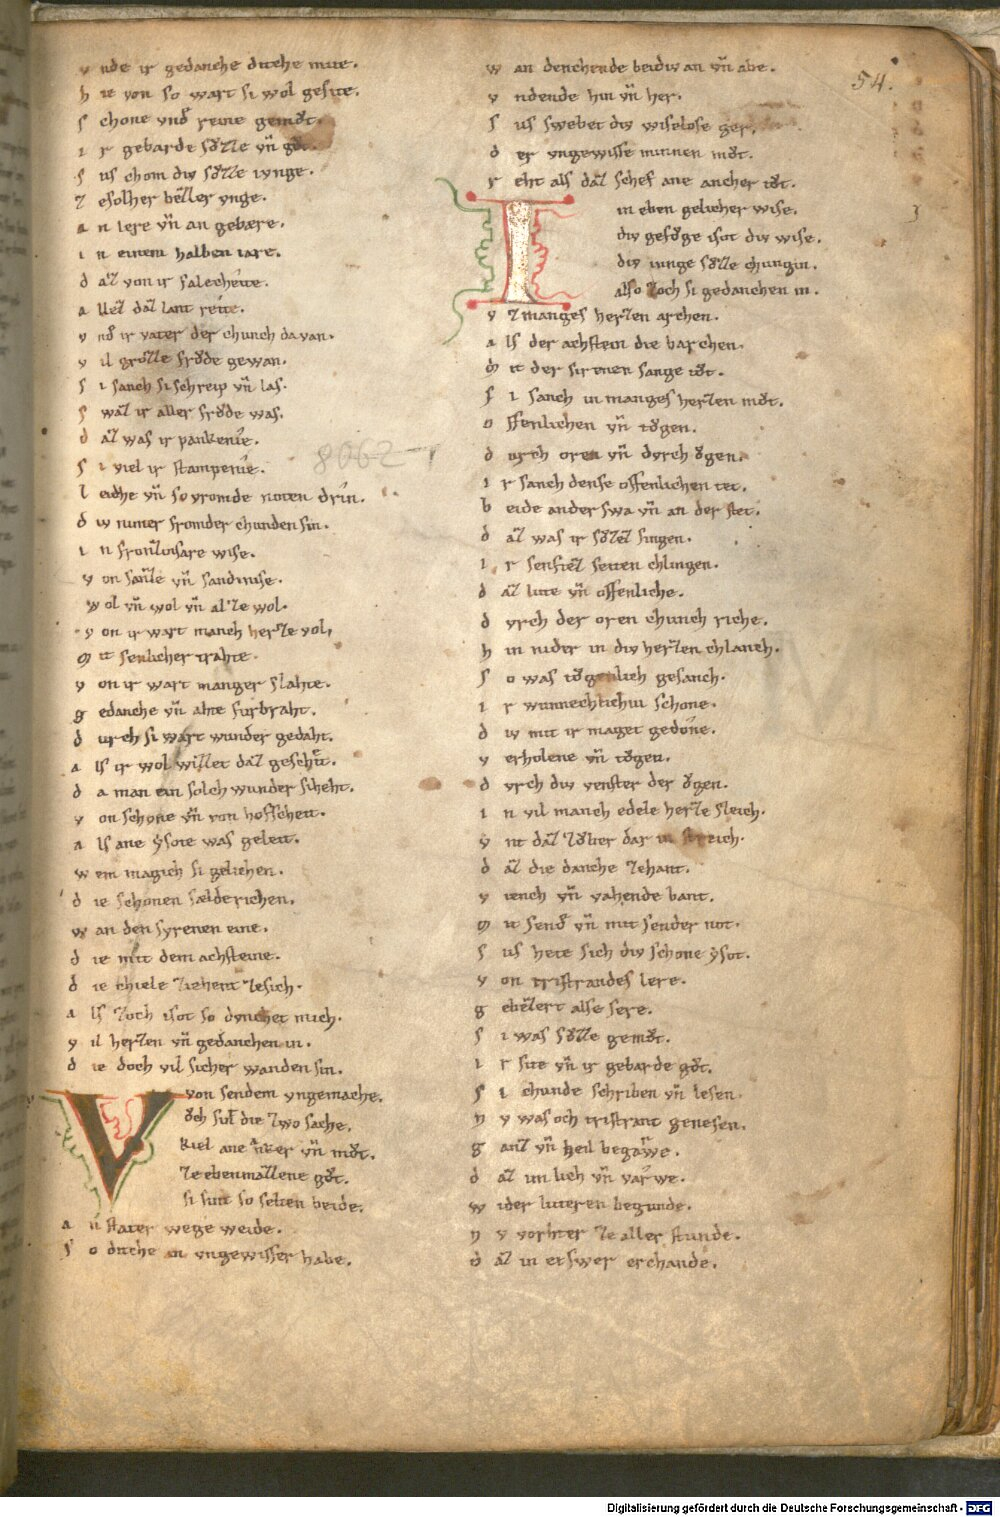 v nde ir gedanche diche mite.
h ie von so wart si wol gesite.
s chone vnd reine gemůt.
i r gebarde sůzze vn̄ gůt.
s us chom div sůzze ivnge.
z esolher bezzer vnge.
a n lere vn̄ an gebære.
i n einem halben iare.
d az von ir salecheite.
a llez daz lant reite.
v nd ir vater der chunch da van.
v il grozze frŏde gewan.
s i sanch si schreip vn̄ las.
s waz ir aller frŏde was.
d az was ir pankenie.
s i viel ir stampenie.
l eiche vn̄ so vromde noten drin.
d iv nimer fromder chunden sin.
i n franzoisare wise.
v on sanze vn̄ sandinise.
w ol vn̄ wol vn̄ alze wol.
v on ir wart manch herze vol,
m it senlicher trahte.
v on ir wart manger slahte.
g edanche vn̄ ahte furbraht.
d urch si wart wunder gedaht.
a ls ir wol wizzet daz geschit.
d a man ein solch wunder siheht.
v on schone vn̄ von hoffcheit.
a ls ane ysote was geleit.
w em magich si gelichen.
d ie schonen sælderichen.
w an den syrenen eine.
d ie mit dem achsteine.
d ie chiele ziehent zesich.
a ls zoch isot so dvnchet mich.
v il herzen vn̄ gedanchen in.
d ie doch vil sicher wanden sin.
V von sendem vngemache.
ŏch sint die zwo sache.
kiel ane anker vn̄ mŏt.
ze ebenmazzene gŏt.
si sint so selten beide.
a n stater wege weide.
s o diche an vngewisser habe.
w an denchende beidiv an vn̄ abe.
v ndende hin vn̄ her.
s us swebet div wiselose ger.
d er vngewisse minnen mŏt.
r eht als daz schef ane ancher tŏt.
I in eben gelicher wise.
div gefŏge isot div wise.
div iunge sŏzze chungin.
also zoch si gedanchen in.
v z manges herzen archen.
a ls der achstein die barchen.
m it der sirenen sange tŏt.
s i sanch in manges herzen mŏt.
o ffenlichen vn̄ tŏgen.
d urch oren vn̄ dvrch ŏgen.
i r sanch dense offenlichen tet.
b eide anderswa vn̄ an der stet.
d az was ir sŏzez singen.
i r senftez seiten chlingen.
d az lute vn̄ offenliche.
d vrch der oren chunch riche.
h in nider in div herzen chlanch.
s o was tŏgenlich gesanch.
i r wunnechlichiu schone.
d iv mit ir maget gedone.
v erholene vn̄ tŏgen.
d vrch div venster der ŏgen.
i n vil manch edele herze sleich.
v nt daz zŏber dar in streich.
d az die danche zehant.
v iench vn̄ vahende bant.
m it send vn̄ mit sender not.
s us hete sich div schone ysot.
v on tristrandes lere.
g ebezzert alse sere.
s i was sŏzze gemŏt.
i r site vn̄ ir gebarde gŏt.
s i chunde schriben vn̄ lesen.
n v was och tristrant genesen.
g anz vn̄ heil begarwe.
d az im lich vn̄ varwe.
w ider luteren begunde.
n v vorhter ze aller stunde.
d az in etswer erchande.
54.
8062
Digitalisierung gefördert durch die Deutsche Forschungsgemeinschaft - DFG